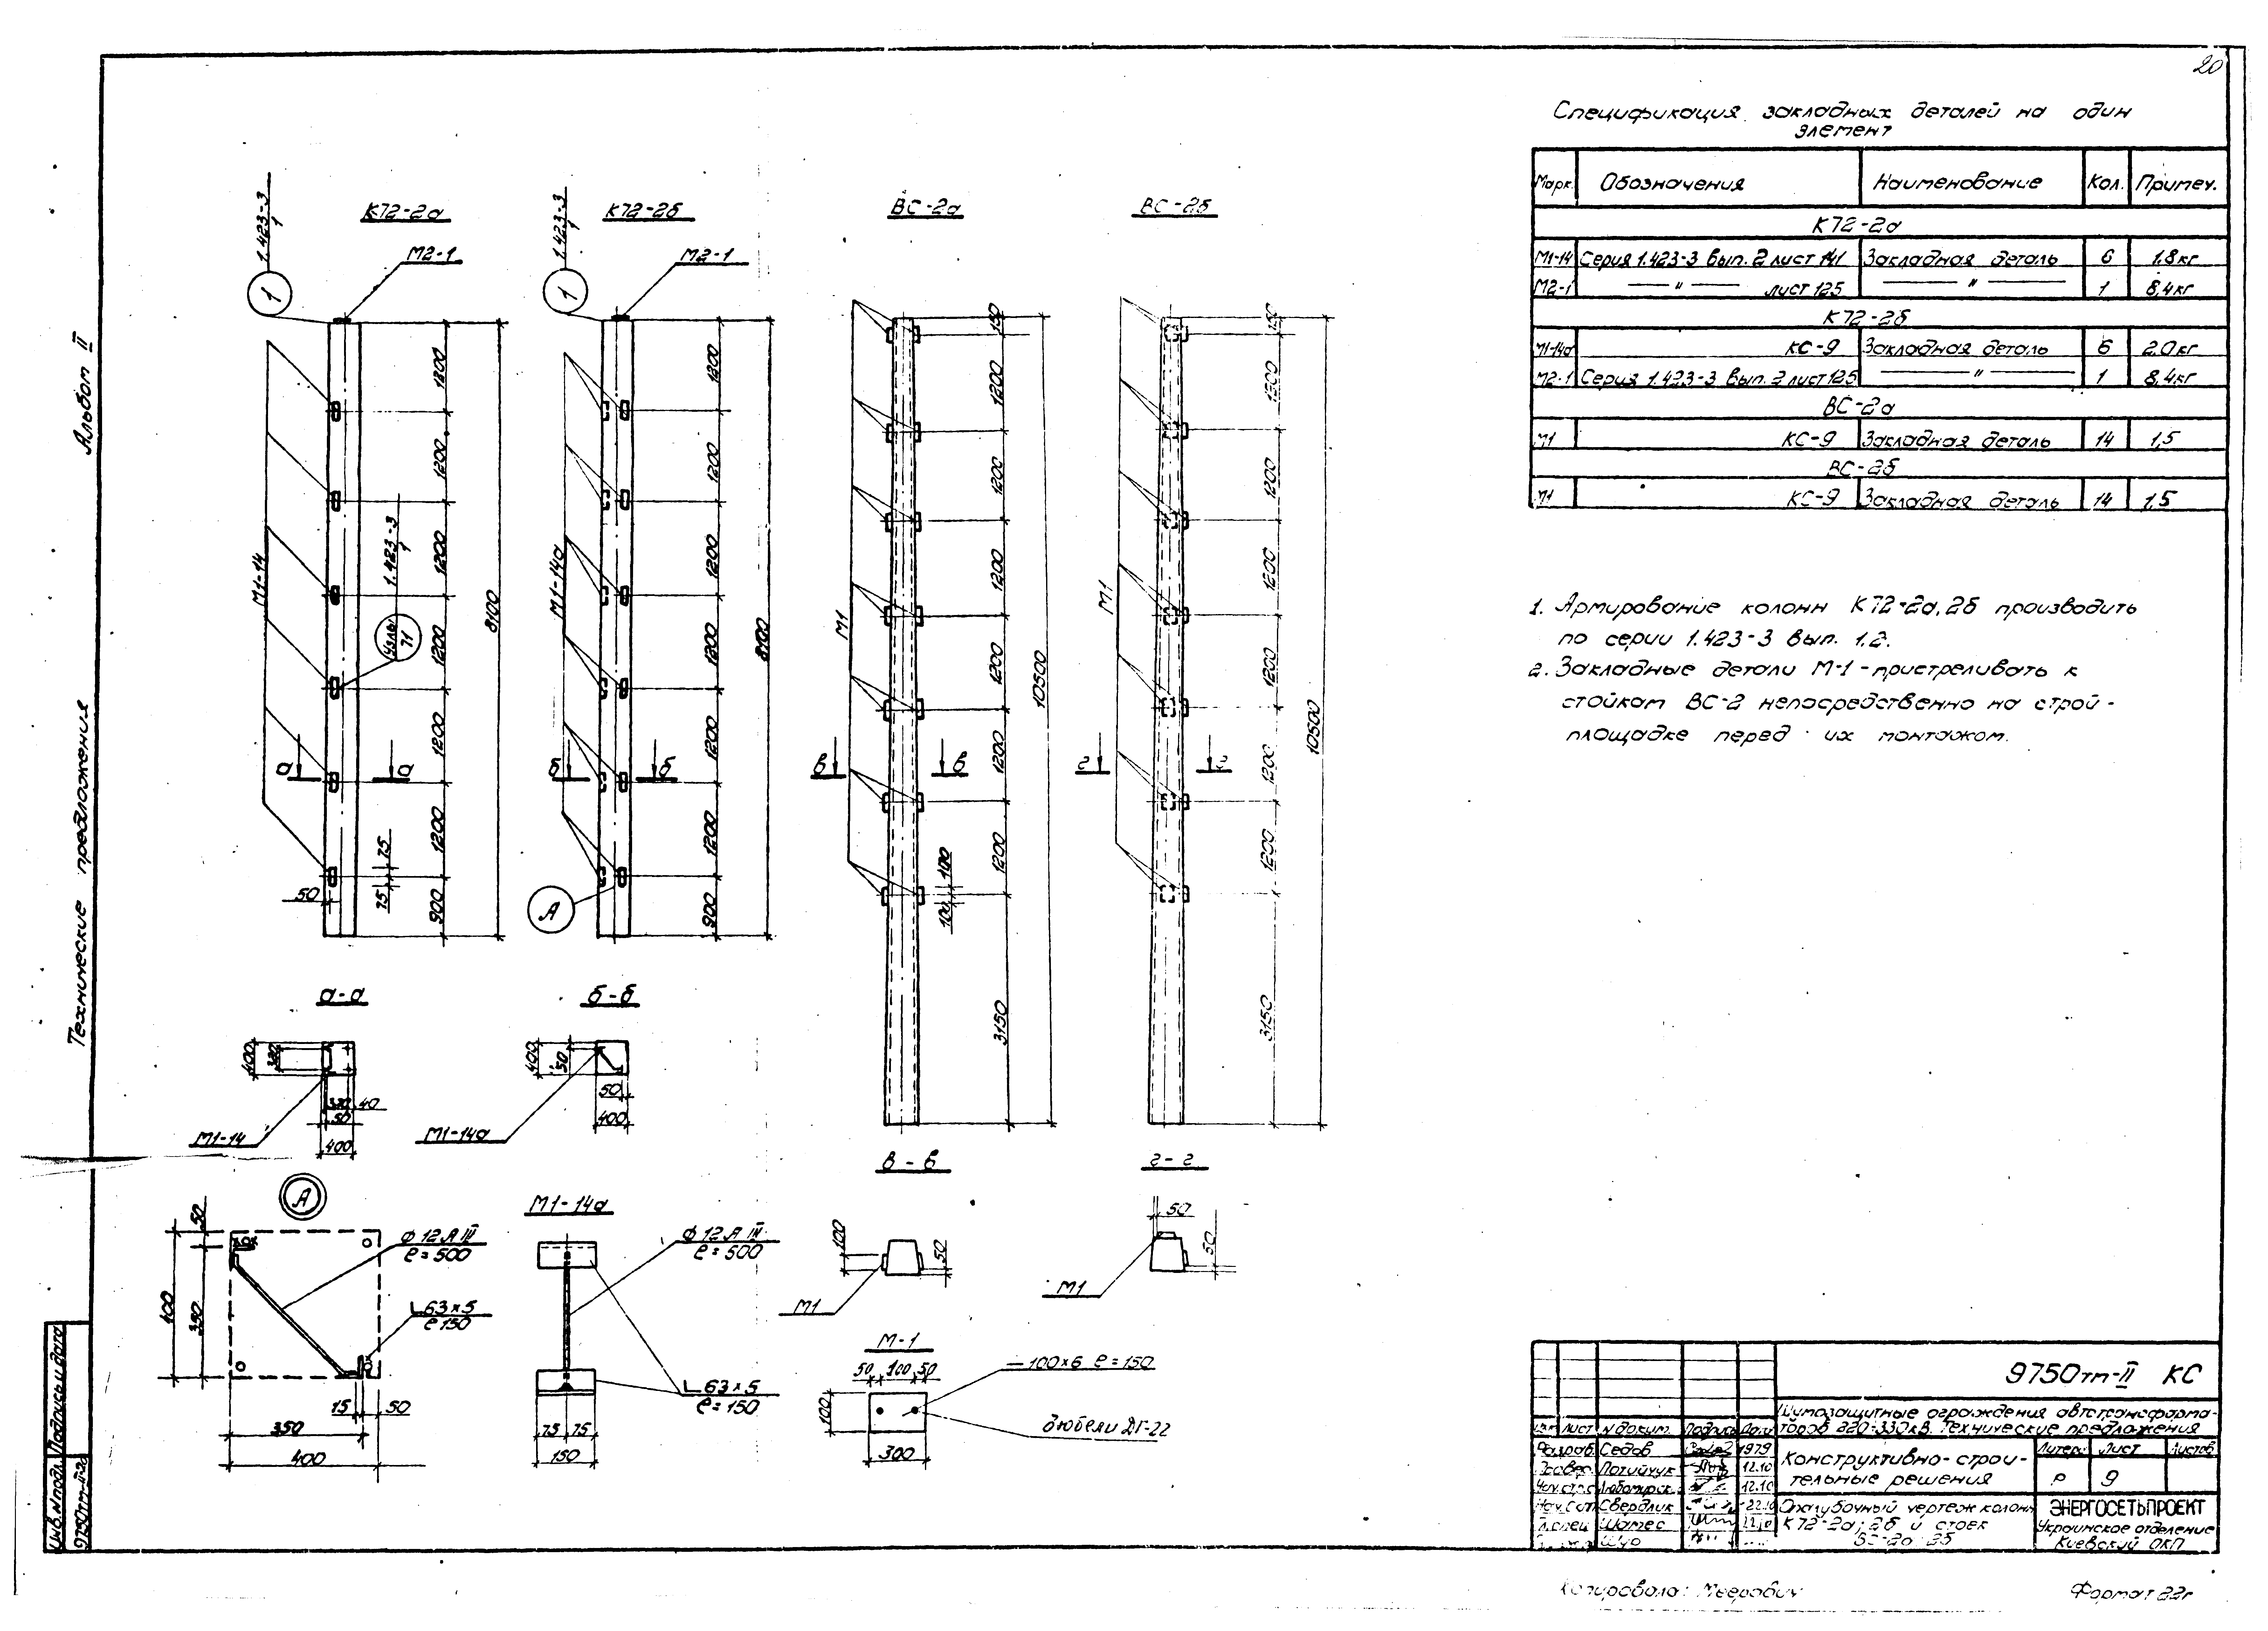 20
Альбом II
Технические предложения
Инв.N подл. Подпись и дата
9750тм-II-20
К72-2а
К72-2б
ВС-2а
ВС-2б
1.423-3
1
1
М2-1
1.423-3
1
1
М2-1
М1-14
М1-14а
М1
М1
1.423-3
1
Узлы
71
1200
1200
1200
1200
1200
1200
900
8100
50
75
75
1200
1200
1200
1200
1200
1200
900
8100
А
150
1200
1200
1200
1200
1200
1200
3150
10500
100
100
150
1200
1200
1200
1200
1200
1200
3150
10500
а а
б б
в в
г г
а-а
400
320
40
50
400
М1-14
б-б
400
50
50
400
М1-14а
в-в
100
50
М1
г-г
50
50
М1
А
50
400
350
ф12АIII
ℓ=500
∟63×5
ℓ150
15 50
350
400
М1-14а
ф12АIII
ℓ=500
∟63×5
ℓ=150
75 75
150
М-1
50 100 50
—100×6 ℓ=150
дюбели ДГ-22
100
300
Спецификация закладных деталей на один
элемент
Марк. Обозначения Наименование Кол. Примеч.
К72-2а
М1-14 Серия 1.423-3 вып. 2 лист 141 Закладная деталь 6 1,8кг
М2-1 —"— лист 125 —"— 1 8,4кг
К72-2б
М1-14а КС-9 Закладная деталь 6 2.0кг
М2-1 Серия 1.423-3 вып. 2 лист 125 —"— 1 8,4кг
ВС-2а
М1 КС-9 Закладная деталь 14 1,5
ВС-2б
М1 КС-9 Закладная деталь 14 1,5
1. Армирование колонн К72-2а,2б производить
по серии 1.423-3 вып. 1,2.
2. Закладные детали М-1-пристреливать к
стойкам ВС-2 непосредственно на строй-
площадке перед их монтажом.
9750тм-II КС
Шумозащитные ограждения автотрансформа-
торов 220-330кВ. Технические предложения
Лист N докум. Подпись Дата
Разраб. Седов 1979
Потийчук 12.10
12.10
Свердлик 22.10
Шамес
Конструктивно-строи-
тельные решения
Литера Лист Листов
Р 9
Опалубочный чертеж колонн
К72-2а; 2б и стоек
ВС-2а 2б
ЭНЕРГОСЕТЬПРОЕКТ
Украинское отделение
Киевский ОКП
Копировала: Меерович
Формат 22г